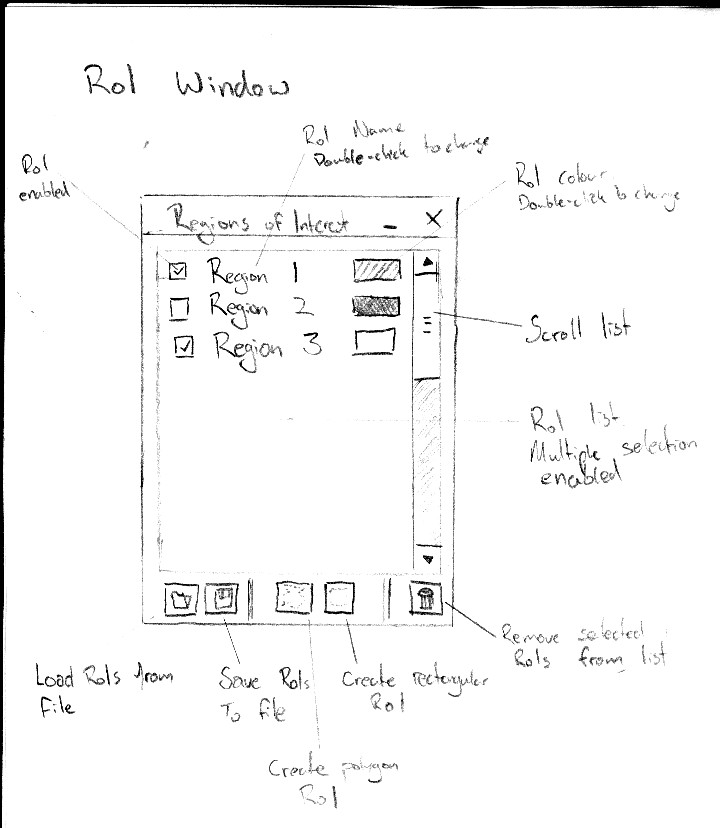 RoI Window
RoI Name
Double-click to change
RoI
enabled
RoI colour
Double-click to change
Regions of Interest
Region 1
Region 2
Region 3
Scroll list
RoI list
Multiple selection
enabled
Remove selected
RoIs from list
Load RoIs from
file
Save RoIs
To file
Create rectangular
RoI
Create polygon
RoI